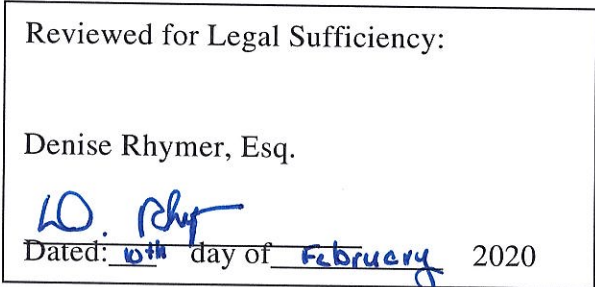 Reviewed for Legal Sufficiency:
Denise Rhymer, Esq.
D. Rhy
Dated: 10th day of February 2020